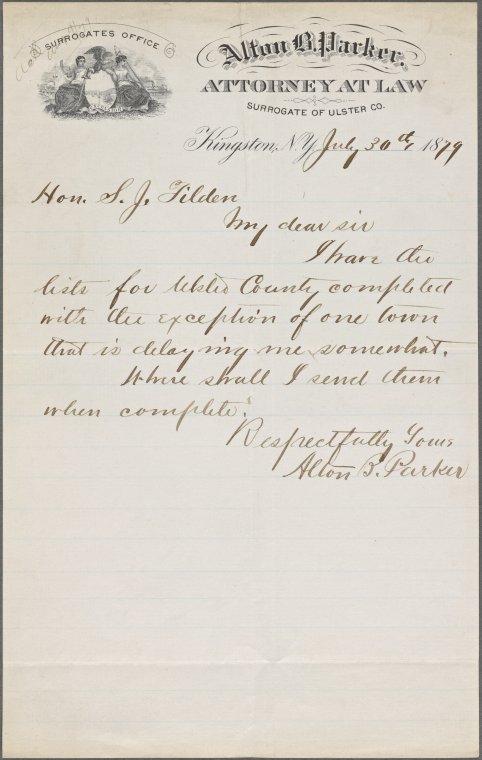 SURROGATES OFFICE
Alton B. Parker.
ATTORNEY AT LAW
SURROGATE OF ULSTER CO.
Kingston, N.Y. July 30th 1879
Hon. S. J. Tilden
My dear sir
I have the
lists for Ulster County completed
with the exception of one town
that is delaying me somewhat.
Where shall I send them
when complete?
Respectfully Yours
Alton B. Parker